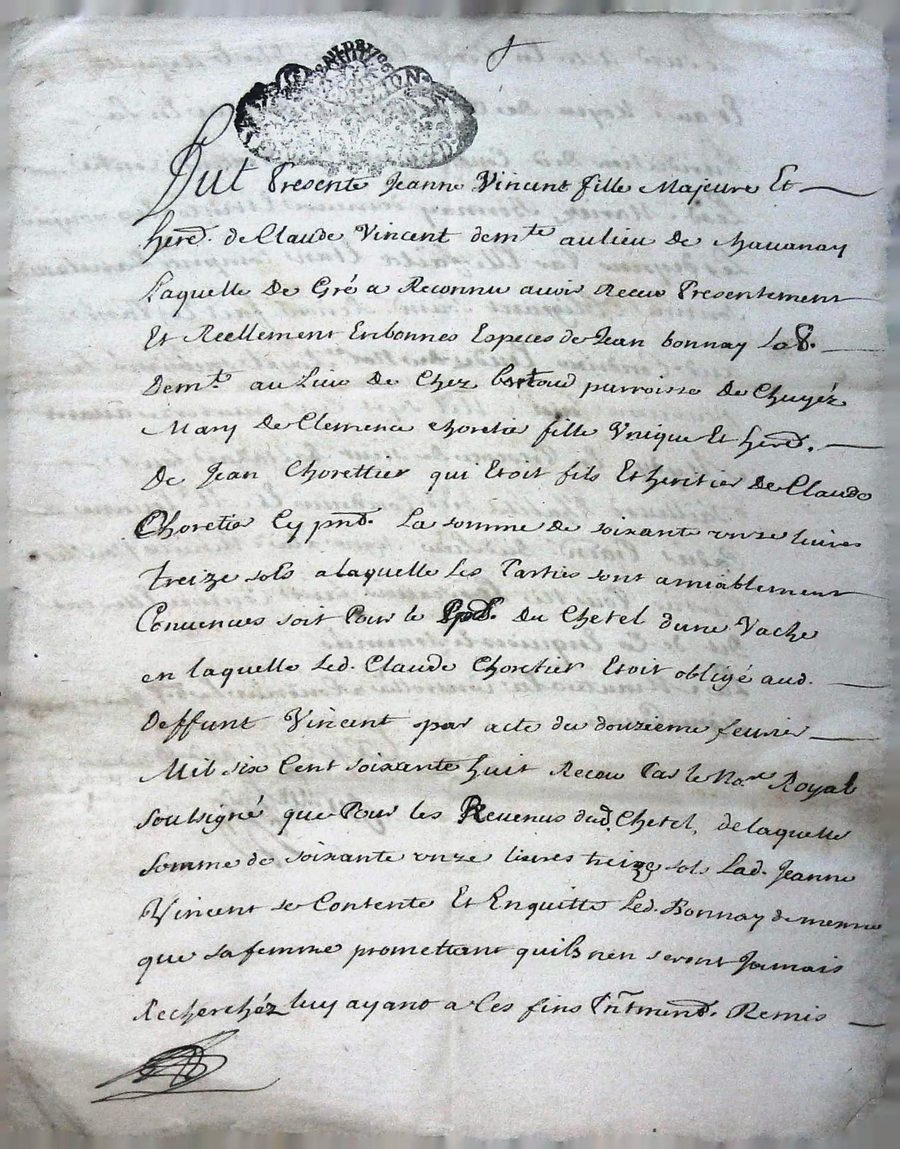 Fut Presente Jeanne Vincent fille Majeure Et
hered. de Claude Vincent demte au lieu de chauanay
Laquelle De Gré a Reconnu auoir Receu Presentement
Et Reellement En bonnes Especes de Jean bonnay Lab.
Demt. au Lieu De Chez bertoud parroisse De Chuyéz
Mary De Clemence choretie fille Vnique Et hered.
De Jean Chorettier qui Etoit fils Et heritier De Claude
Choretier Cy pnt. La somme de soixante vnze liures
treize sols a laquelle Les Parties sont amiablement
Conuenues soit Pour le Ppal. Du Chetel d'une Vache
en laquelle Led. Claude Choretier Etoit obligé aud.
Deffunt Vincent par acte du douzieme feurier
Mil six Cent soixante huit Receu Par le Nore. Royal
soubsigné que Pour les Reuenus dud. Chetel, de laquelle
somme de soixante vnze liures treize sols Lad. Jeanne
Vincent se Contente Et Enquitte Led. Bonnay de mesme
que sa femme promettant quils nen seront Jamais
Recherchéz luy ayant a Ces fins Remis